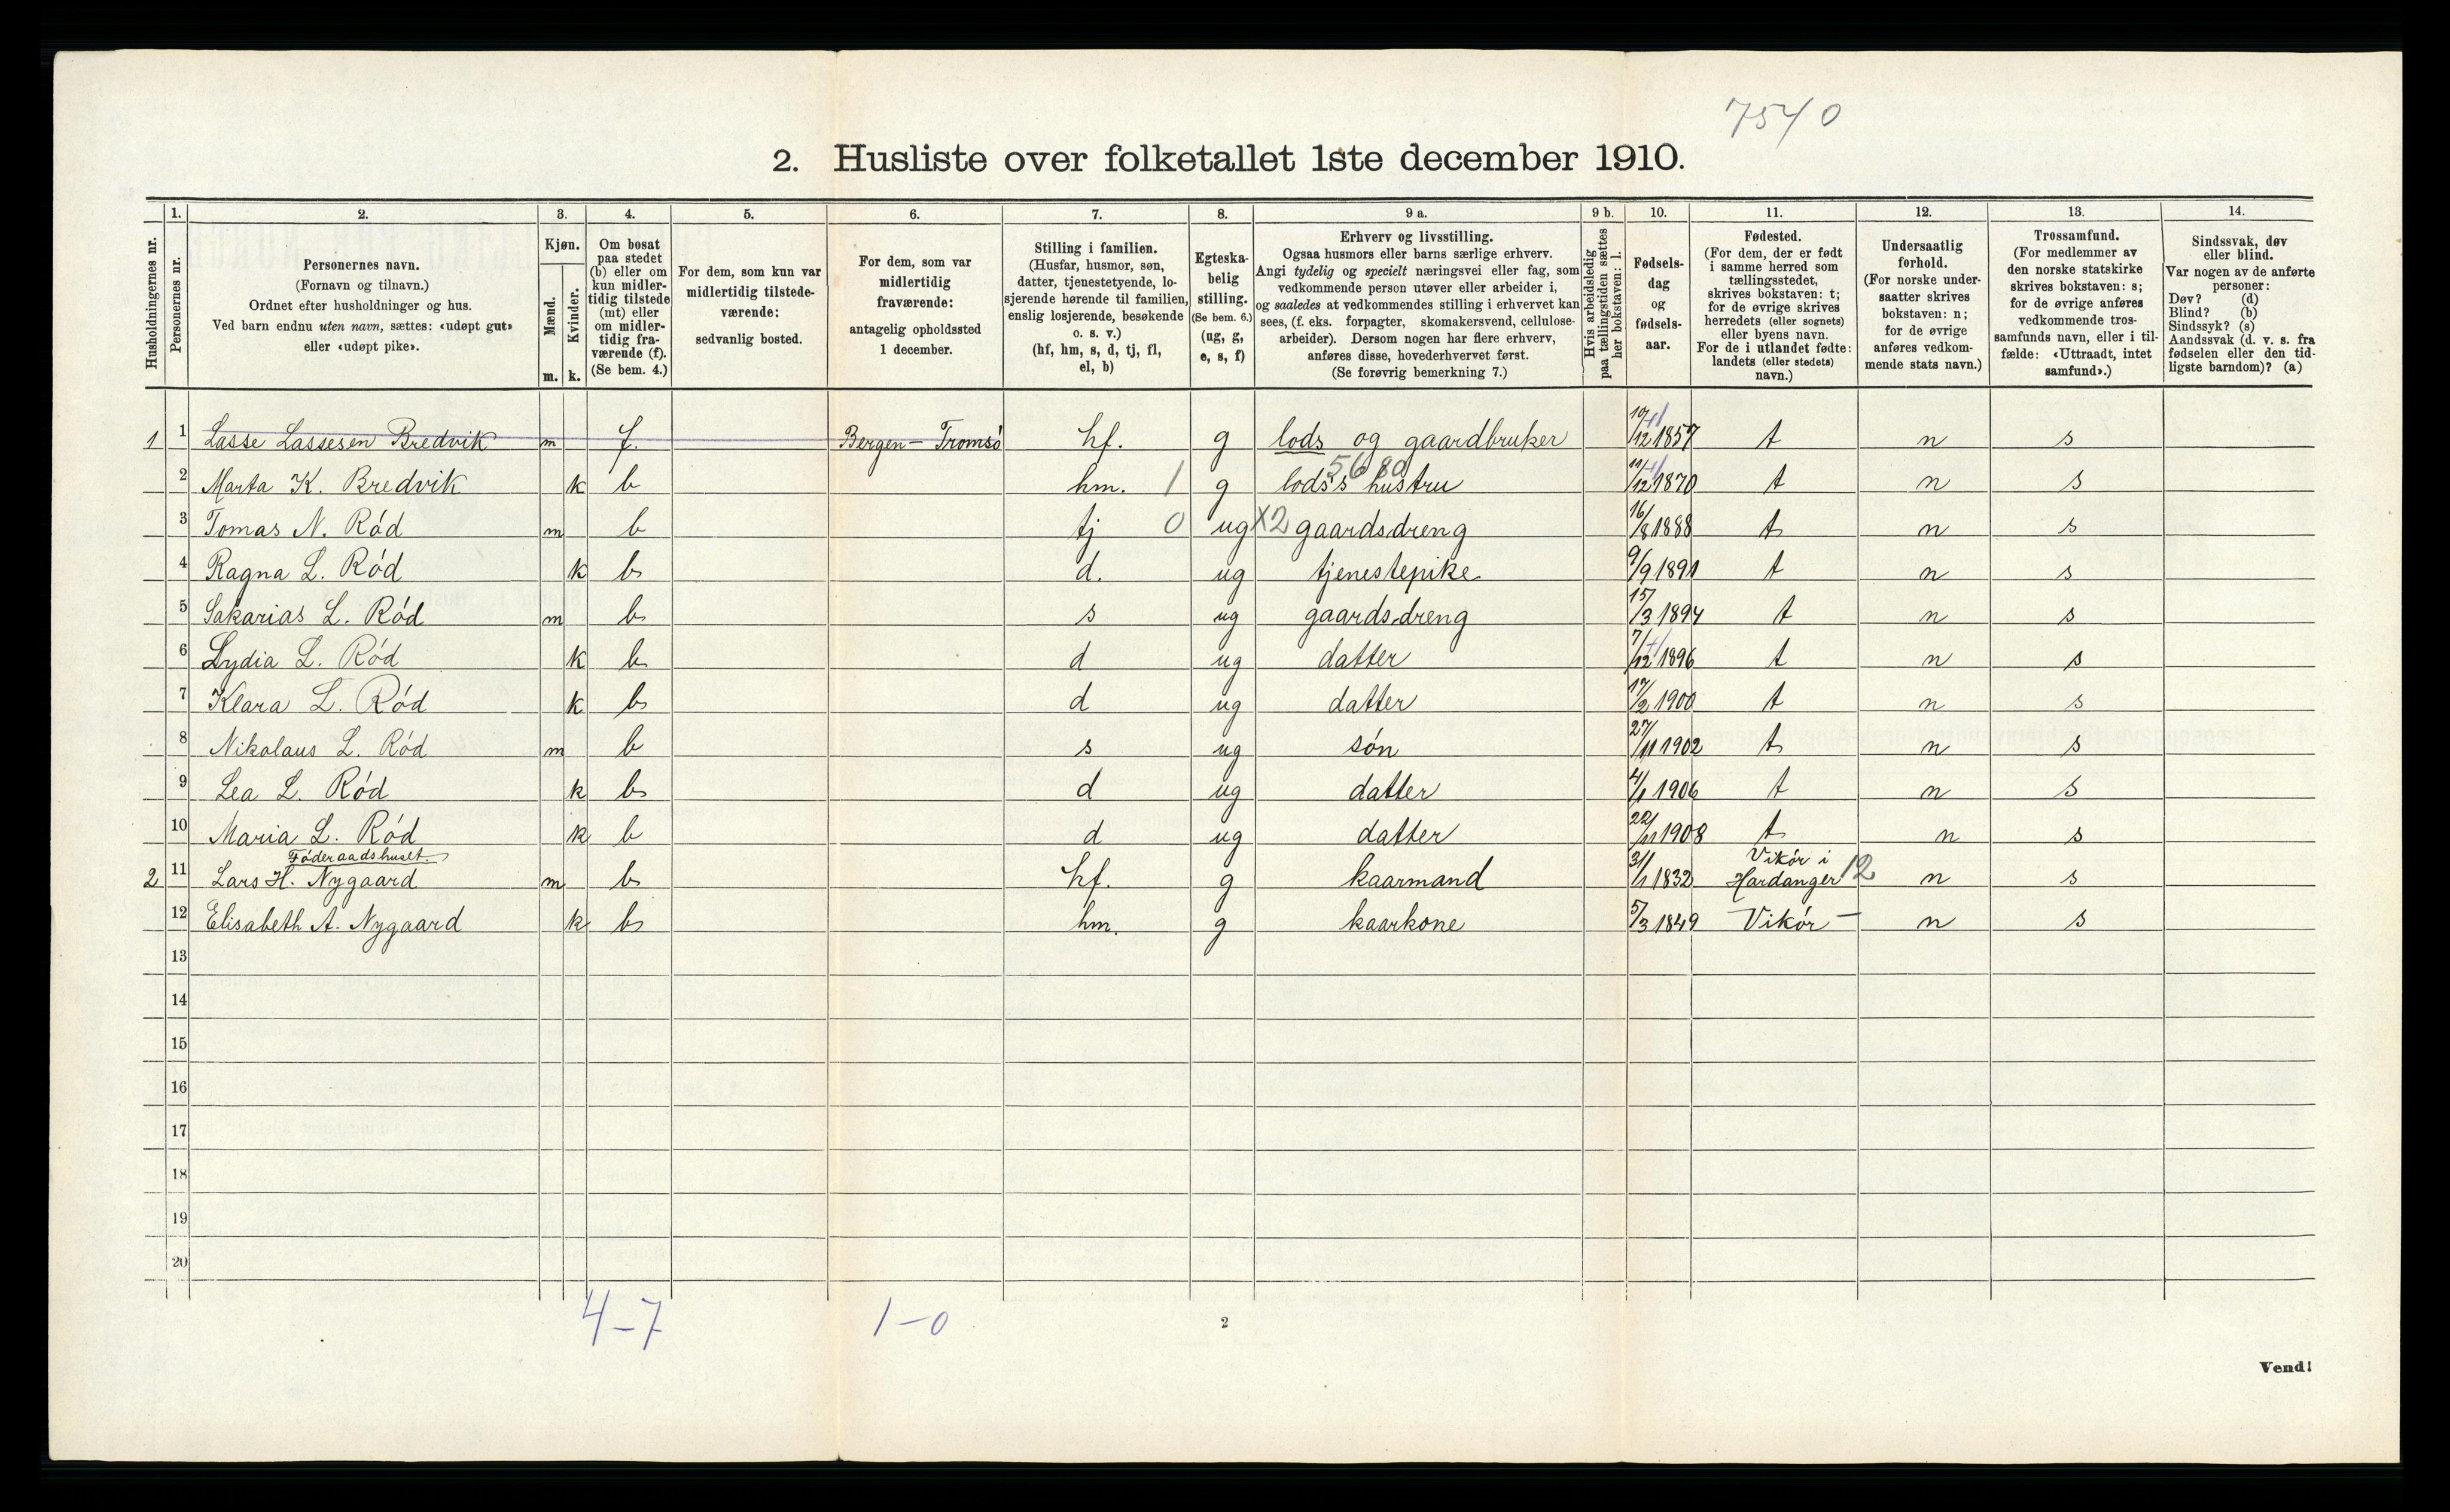 7540
2. Husliste over folketallet 1ste december 1910.
Husholdningernes nr.
1.
Personernes nr.
2.
Personernes navn.
(Fornavn og tilnavn.)
Ordnet efter husholdninger og hus.
Ved barn endnu uten navn, sættes: «udøpt gut»
eller «udøpt pike».
3.
Kjøn.
Mænd.
Kvinder.
m. k.
4.
Om bosat
paa stedet
(b) eller om
kun midler-
tidig tilstede
(mt) eller
om midler-
tidig fra-
værende (f).
(Se bem. 4.)
5.
For dem, som kun var
midlertidig tilstede-
værende:
sedvanlig bosted.
6.
For dem, som var
midlertidig
fraværende:
antagelig opholdssted
1 december.
7.
Stilling i familien.
(Husfar, husmor, søn,
datter, tjenestetyende, lo-
sjerende hørende til familien,
enslig losjerende, besøkende
o. s. v.)
(hf, hm, s, d, tj, fl,
el, b)
8.
Egteska-
belig
stilling.
(Se bem. 6.)
(ug, g,
e, s, f)
9 a.
Erhverv og livsstilling.
Ogsaa husmors eller barns særlige erhverv.
Angi tydelig og specielt næringsvei eller fag, som
vedkommende person utøver eller arbeider i,
og saaledes at vedkommendes stilling i erhvervet kan
sees, (f. eks. forpagter, skomakersvend, cellulose-
arbeider). Dersom nogen har flere erhverv,
anføres disse, hovederhvervet først.
(Se forøvrig bemerkning 7.)
9 b.
Hvis arbeidsledig
paa tællingstiden sættes
her bokstaven: l.
10.
Fødsels-
dag
og
fødsels-
aar.
11.
Fødested.
(For dem, der er født
i samme herred som
tællingsstedet,
skrives bokstaven: t;
for de øvrige skrives
herredets (eller sognets)
eller byens navn.
For de i utlandet fødte:
landets (eller stedets)
navn.)
12.
Undersaatlig
forhold.
(For norske under-
saatter skrives
bokstaven: n;
for de øvrige
anføres vedkom-
mende stats navn.)
13.
Trossamfund.
(For medlemmer av
den norske statskirke
skrives bokstaven: s;
for de øvrige anføres
vedkommende tros-
samfunds navn, eller i til-
fælde: «Uttraadt, intet
samfund».)
14.
Sindssvak, døv
eller blind.
Var nogen av de anførte
personer:
Døv? (d)
Blind? (b)
Sindssyk? (s)
Aandssvak (d. v. s. fra
fødselen eller den tid-
ligste barndom)? (a)
1 1 Lasse Lassesen Bredvik m f. Bergen - Tromsö hf. g lods og gaardbruker 10/12 1857 t n s
5680
2 Marta K. Bredvik k b hm. 1 g lods's hustru 11/12 1870 t n s
3 Tomas N. Ród m b tj 0 ug X2 gaardsdreng 16/8 1888 t n s
4 Ragna L. Ród k b d. ug tjenestepike 9/9 1891 t n s
5 Sakarias L. Ród m b s ug gaardsdreng 15/3 1894 t n s
6 Lydia L. Ród k b d ug datter 7/12 1896 t n s
7 Klara L. Ród k b d ug datter 17/2 1900 t n s
8 Nikolaus L. Ród m b s ug són 27/11 1902 t n s
9 Lea L. Ród k b d ug datter 4/1 1906 t n s
10 Maria L. Ród k b d ug datter 22/11 1908 t n s
Föderaadshuset.
2 11 Lars H. Nygaard m b hf. g kaarmand 31/1 1832 Vikór i Hardanger 12 n s
12 Elisabeth A. Nygaard k b hm. g kaarkone 5/3 1849 Vikór — n s
13
14
15
16
17
18
19
20
4-7 1-0
2
Vend!